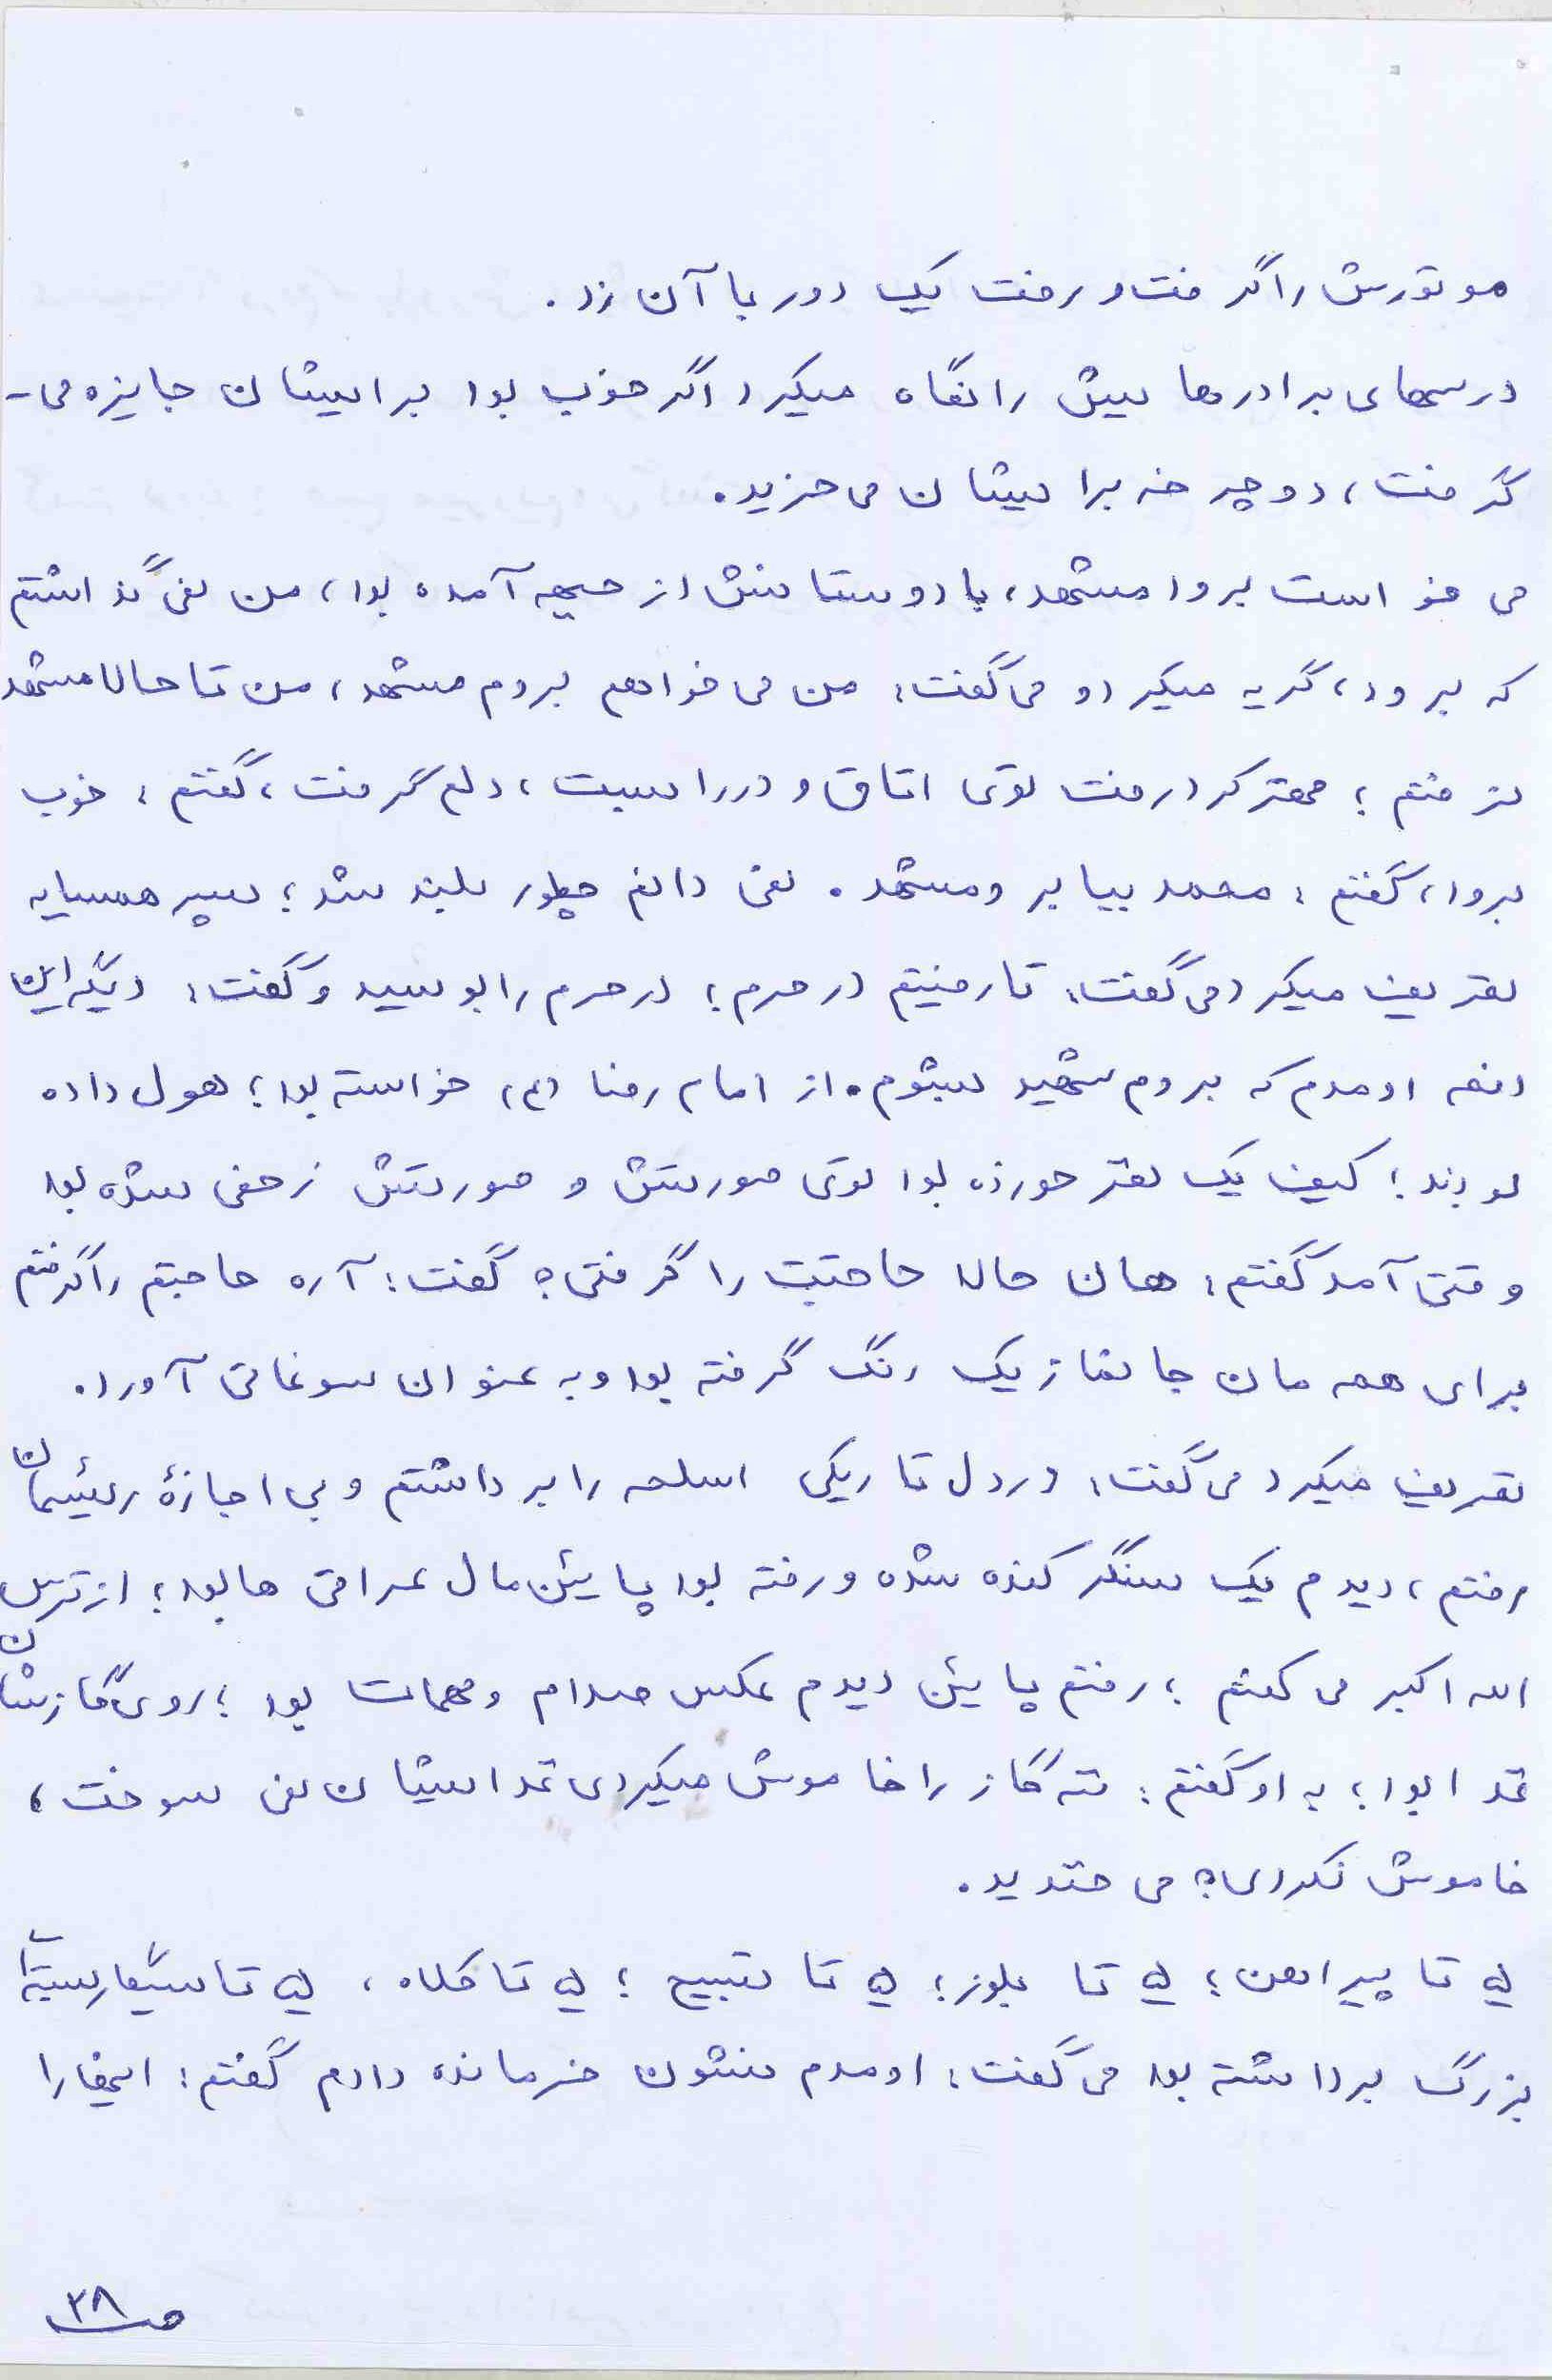 موتورش را گرفت و رفت یک دور با آن زد.
درسهای برادرهایش را نگاه میکرد اگر خوب بود برایشان جایزه می-
گرفت، دوچرخه برایشان می خرید.
می خواست برود مشهد، با دوستانش از جبهه آمده بود، من نمی گذاشتم
که برود، گریه میکرد و می گفت: من می خواهم بروم مشهد، من تا حالا مشهد
نرفتم؛ قهر کرد رفت توی اتاق و در را بست، دلم گرفت، گفتم: خوب
برود، گفتم: محمد بیا برو مشهد. نمی دانم چطور بلند شد؛ پسر همسایه
تعریف میکرد می گفت: تا رفتیم در حرم؛ در حرم را بوسید و گفت: دیگه این
دفعه اومدم که بروم شهید بشوم. از امام رضا (ع) خواسته بود؛ هول داده
بودند؛ کیف یک نفر خورده بود توی صورتش و صورتش زخمی شده بود
وقتی آمد گفتم: هان حالا حاجتت را گرفتی؟ گفت: آره حاجتم را گرفتم
برای همه مان جانماز یک رنگ گرفته بود و به عنوان سوغاتی آورد.
تعریف میکرد می گفت: در دل تاریکی اسلحه را برداشتم و بی اجازهٔ رئیسمان
رفتم، دیدم یک سنگر کنده شده و رفته بود پایین مال عراقی ها بود؛ از ترس
الله اکبر می گفتم؛ رفتم پایین دیدم عکس صدام و مهمات بود؛ روی گازشان
غذا بود؛ به او گفتم: ننه گاز را خاموش میکردی غذا ایشان نمی سوخت،
خاموش نکردی؟ می خندید.
۵ تا پیراهن؛ ۵ تا بلوز؛ ۵ تا تسبیح؛ ۵ تا کلاه، ۵ تا سیگار بسته
بزرگ برداشته بود می گفت: اومدم بهشون فرمانده دادم گفتم: اینها را
ص ۲۸